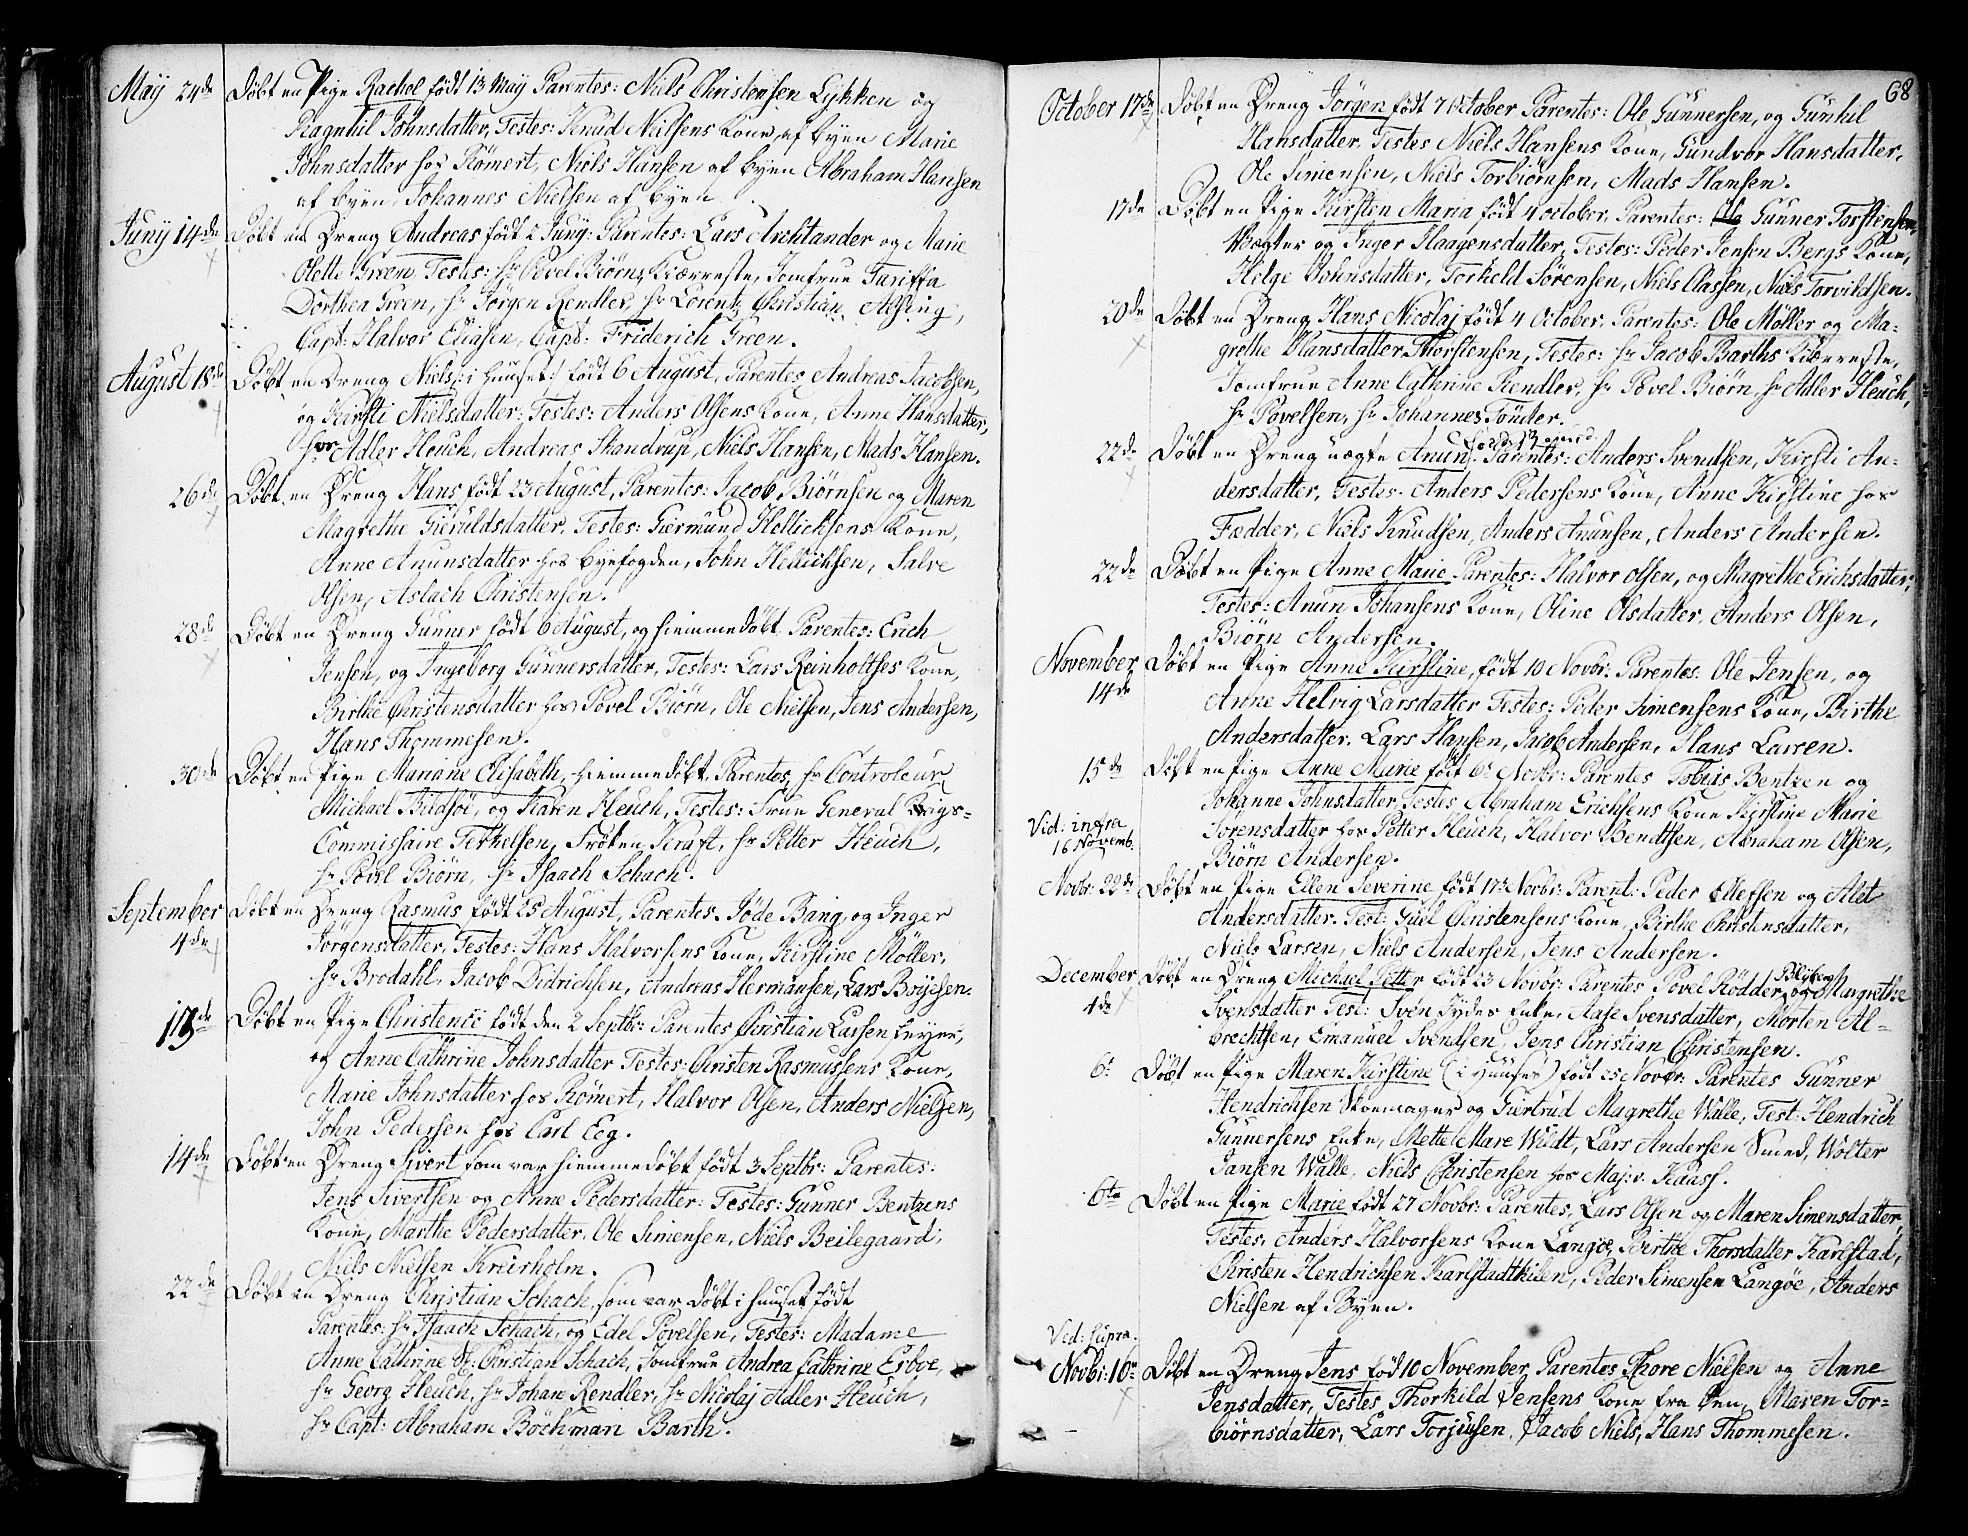 May 24de Döbt en Pige Rachel födt 13 May Parentes: Niels Christensen Lykken og
Ragnhil Johnsdatter, Testes: Knud Nielsens Kone af byen Marie
Johnsdatter hos Römert, Niels Hansen af byen Abraham Hansen
af byen, Johannes Nielsen af byen
Juny 14de Döbt en Dreng Andreas födt 2 Juny: Parentes: Lars Archtander og Marie
Olette Green, Testes: Hr Povel Biörns Kiærreste, Jomfrue Tariffa
Dorthea Green, Hr Jörgen Rendler, Hr Lorentz Christian Alsing,
Capt: Halvor Eliasen, Capt: Friderich Green.
August 18de Döbt en Dreng Niels /: i Huuset :/ födt 6 August, Parentes Andreas Jacobsen,
og Kirsti Nielsdatter: Testes: Anders Olsens Kone, Anne Hansdatter,
hos Adler Heuch, Andreas Skandrup, Niels Hansen, Mads Hansen.
26de Döbt en Dreng Hans födt 23 August, Parentes: Jacob Biörnsen og Maren
Magrethe Gieruldsdatter. Testes: Giermund Hellichsens Kone,
Anne Anunsdatter hos byefogden, John Hellichsen, Salve
Olsen, Aslach Christensen.
28de Döbt en Dreng Gunner födt 6 August, og hiemmedöbt Parentes: Erich
Jensen, og Ingeborg Gunnersdatter, Testes: Lars Reinholtses Kone,
Birthe Christensdatter hos Povel Biörn, Ole Nielsen, Jens Andersen,
Hans Thommesen.
30de Döbt en Pige Mariane Elisabeth, hiemmedöbt, Parentes, Hr Controleur
Michael Budsöe, og Karen Heuch, Testes: Frue General Krigs-
Commissaire Terkelsen, Fröken Kraft, Hr Petter Heuch,
Hr Povel Biörn, Hr Isaach Schach.
September Döbt en Dreng Rasmus födt 25 August, Parentes Jöde Bang, og Inger
4de Jörgensdatter, Testes: Hans Halvorsens Kone, Kirstine Möller,
Hr Brodahl, Jacob Didrichsen, Andreas Hermansen, Lars Boyesen.
13de Döbt en Pige Christence födt den 2 Septbr: Parentes Christian Lassen Feyer,
og Anne Cathrine Johnsdatter Testes: Christen Rasmussens Kone,
Marie Johnsdatter hos Römert, Halvor Olsen, Anders Nielsen,
John Pedersen hos Carl Eeg.
14de Döbt en Dreng Sivert som var hiemmedöbt födt 3 Septbr: Parentes:
Jens Sivertsen og Anne Pedersdatter: Testes: Gunner Bentzens
Kone, Marthe Pedersdatter, Ole Simensen, Niels Beilegaard,
Niels Nielsen Kreierholm.
22de Döbt en Dreng Christian Schach, som var döbt i huuset födt
Parentes: Hr Isaach Schach, og Edel Povelsen, Testes: Madame
Anne Cathrine Sl: Christian Schach, Jomfrue Andrea Cathrine Esboe,
Hr Georg Heuch, Hr Johan Rendler, Hr Nicolaj Adler Heuch,
Hr Capt: Abraham Böchman Barth.
68
October 17de Döbt en Dreng Jörgen födt 7 October Parentes: Ole Gunnersen, og Gunhil
Hansdatter, Testes Niels Hansens Kone, Gundvor Hansdatter,
Ole Simensen, Niels Torbiörnsen, Mads Hansen.
17de Döbt en Pige Kirsten Maria födt 4 october, Parentes: Gunner Torstensen
Vægter og Inger Haagensdatter, Testes: Peder Jensen Bergs Kone,
Hilge Johnsdatter, Torkeld Sörensen, Niels Classen, Niels Torvildsen.
20de Döbt en Dreng Hans Nicolaj födt 4 October, Parentes: Ole Möller og Ma-
grethe Hansdatter Thorstensen, Testes: Hr Jacob Barths Kiereste,
Jomfrue Anne Cathrine Rendler, Hr Povel Biörn, Hr Adler Heuch,
Hr Povelsen, Hr Johannes Fönder.
22de Döbt en Dreng uægte Anun Parentes: Anders Svendsen, Kirsti An-
dersdatter, Testes. Anders Pedersens Kone, Anne Kirstine hos
Fædder, Niels Knudsen, Anders Anunsen, Anders Andersen.
22de Döbt en Pige Anne Marie Parentes: Halvor Olsen, og Magrethe Erichsdatter,
Testes: Anun Johansens Kone, Oline Olsdatter, Anders Olsen,
Biörn Andersen.
November Döbt en Pige Anne Kirstine, födt 10 Novbr: Parentes: Ole Jensen, og
14de Anne Helvig Larsdatter Testes: Peder Simensens Kone, Birthe
Andersdatter, Lars Hansen, Jacob Andersen, Hans Larsen.
15de Döbt en Pige Anne Marie födt 6t Novbr: Parentes Tobias Bentzen og
Johanne Johnsdatter, Testes Abraham Erichsens Kone Kirstine Marie
Vid: infra Sörensdatter hos Petter Heuch, Halvor Bendtsen, Abraham Olsen,
16 Novemb. Biörn Andersen.
Novbr: 22de Döbt en Pige Ellen Severine födt 17t Novbr: Parent: Peder Ellefsen og Alet
Andersdatter. Test: Guel Christensens Kone, Birthe Christensdatter,
Niels Larsen, Niels Andersen, Jens Andersen.
December Döbt en Dreng Michael Petter födt 23 Novbr: Parentes Povel Rödder og Margrethe
4de Svensdatter Test: Sven Jydes Enke, Aase Svensdatter, Morten Al-
brechtsen, Emanuel Svendsen, Jens Christian Christensen.
6t Döbt en Pige Maren Kirstine (i Huuset) födt 25 Novbr: Parentes Gunner
Hendrichsen Skoemager og Giertrud Magrethe Walle, Test: Hendrich
Gunnersens Enke, Mette Mare Wildt, Lars Andersen Smed, Wolter
Jansen Walle, Niels Christensen hos Maj: v. Kaass.
6te Döbt en Pige Marie födt 27 Novbr: Parentes, Lars Olsen og Maren Simensdatter,
Testes, Anders Halvorsens Kone Langöe, Birthe Thorsdatter Karlstad,
Christen Hendrichsen Karlstadtkilen, Peder Simensen Langöe, Anders
Nielsen af Byen.
Vid: supra.
Novbr: 16t Döbt en Dreng Jens föd 10 November Parentes Thore Nielsen og Anne
Jensdatter, Testes Thorkild Jensens Kone fra Öen, Maren Tor-
biörnsdatter, Lars Torjusen, Jacob Niels, Hans Thommesen.